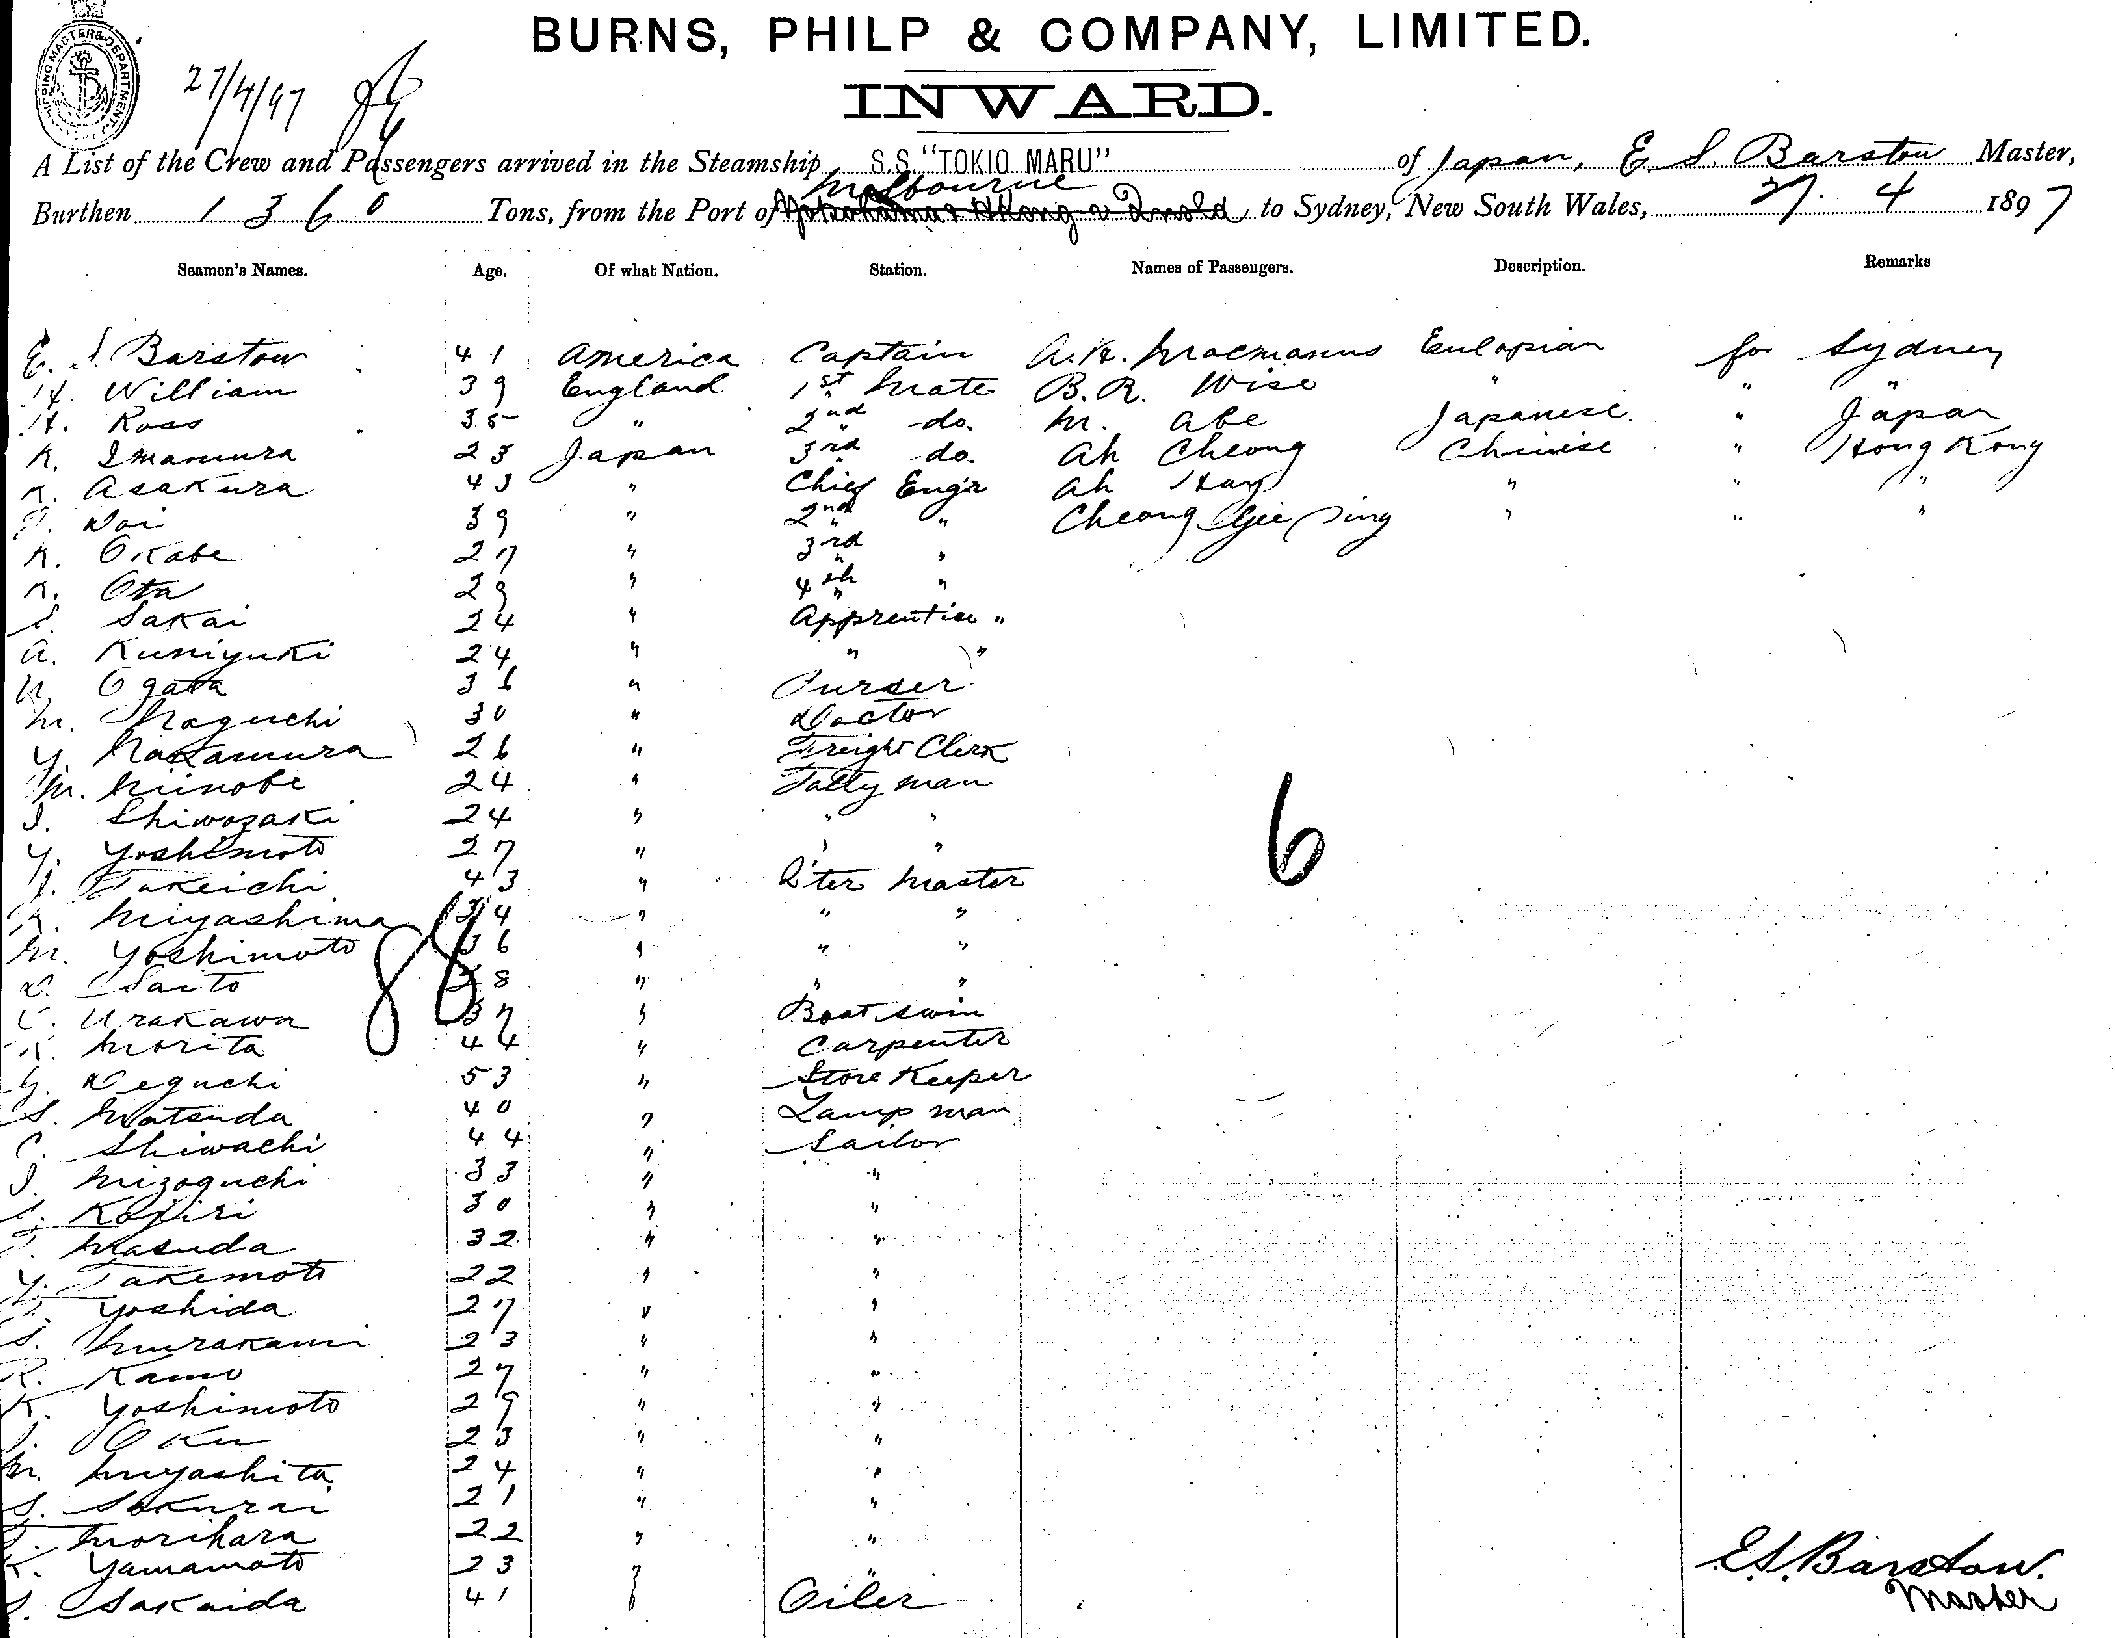 BURNS, PHILP & COMPANY, LIMITED.
27/4/97
INWARD.
A List of the Crew and Passengers arrived in the Steamship S.S. "TOKIO MARU" of Japan, E. S. Barstow Master,
Melbourne
Burthen 1360 Tons, from the Port of to Sydney, New South Wales, 27. 4 1897
Seamen's Names. Age. Of what Nation. Station. Names of Passengers. Description. Remarks
E. S. Barstow 41 America Captain A.H. Macmanus Eulopian for Sydney
H. William 39 England 1st Mate B.R. Wise " " "
H. Ross 35 " 2nd do. M. Abe Japanese. " Japan
K. Imamura 23 Japan 3rd do. Ah Cheong Chinise " Hong Kong
K. Asakura 43 " Chief Eng'r Ah Hay " " "
T. Doi 39 " 2nd " Cheong Gee Sing " " "
K. Okabe 27 " 3rd "
K. Ota 29 " 4th "
S. Sakai 24 " Apprentice "
A. Kuniyuki 24 " " "
U. Ogata 36 " Purser
M. Noguchi 30 " Doctor
Y. Nakamura 26 " Freight Clerk
M. Niinobe 24 " Tally man
S. Shiwozaki 24 " " "
Y. Yoshimoto 27 " " "
J. Takeichi 43 " Q'ter Master
K. Miyashima 34 " " "
M. Yoshimoto 36 " " "
D. Saito 38 " " "
C. Urakawa 37 " Boat swin
K. Morita 44 " Carpenter
G. Deguchi 53 " Store Keeper
S. Matsuda 40 " Lamp man
C. Shiwachi 44 " Sailor
J. Mizoguchi 33 " "
S. Kojiri 30 " "
T. Masuda 32 " "
Y. Takemoto 22 " "
Yoshida 27 " "
S. Murakami 23 " "
R. Kamo 27 " "
K. Yoshimoto 29 " "
J. Oku 23 " "
M. Miyashita 24 " "
S. Sakurai 21 " "
T. Morihara 22 " "
K. Yamamoto 23 " "
S. Sakaida 41 " Oiler
86
6
E.S. Barstow.
Master